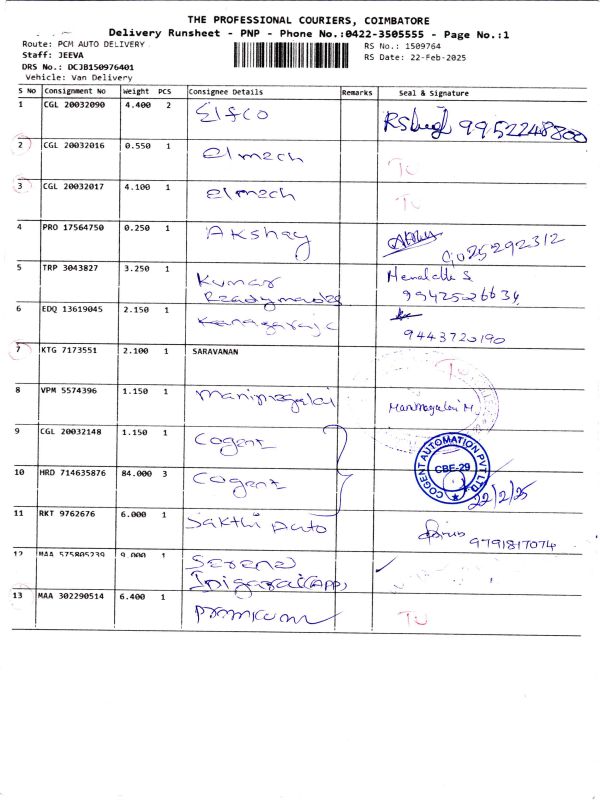 THE PROFESSIONAL COURIERS, COIMBATORE
Delivery Runsheet - PNP - Phone No.:0422-3505555 - Page No.:1
Route: PCM AUTO DELIVERY
RS No.: 1509764
Staff: JEEVA
RS Date: 22-Feb-2025
DRS No.: DCJB150976401
Vehicle: Van Delivery
S No Consignment No Weight PCS Consignee Details Remarks Seal & Signature
1 CGL 20032090 4.400 2 Elfco 9952248800
2 CGL 20032016 0.550 1 elmech TU
3 CGL 20032017 4.100 1 elmech TU
4 PRO 17564750 0.250 1 Akshay
5 TRP 3043827 3.250 1 Kumar Readymades
6 EDQ 13619045 2.150 1 Kanagaraj 9443720190
7 KTG 7173551 2.100 1 SARAVANAN TU
8 VPM 5574396 1.150 1 manimegalai Manimegalai M
9 CGL 20032148 1.150 1 Cogent
COGENT AUTOMATION PVT LTD
CBE-29
10 HRD 714635876 84.000 3 Cogent 22/2/25
11 RKT 9762676 6.000 1 Sakthi Auto 9791817074
12 MAA 575805239 9.000 1 Serena
13 MAA 302290514 6.400 1 premium TU